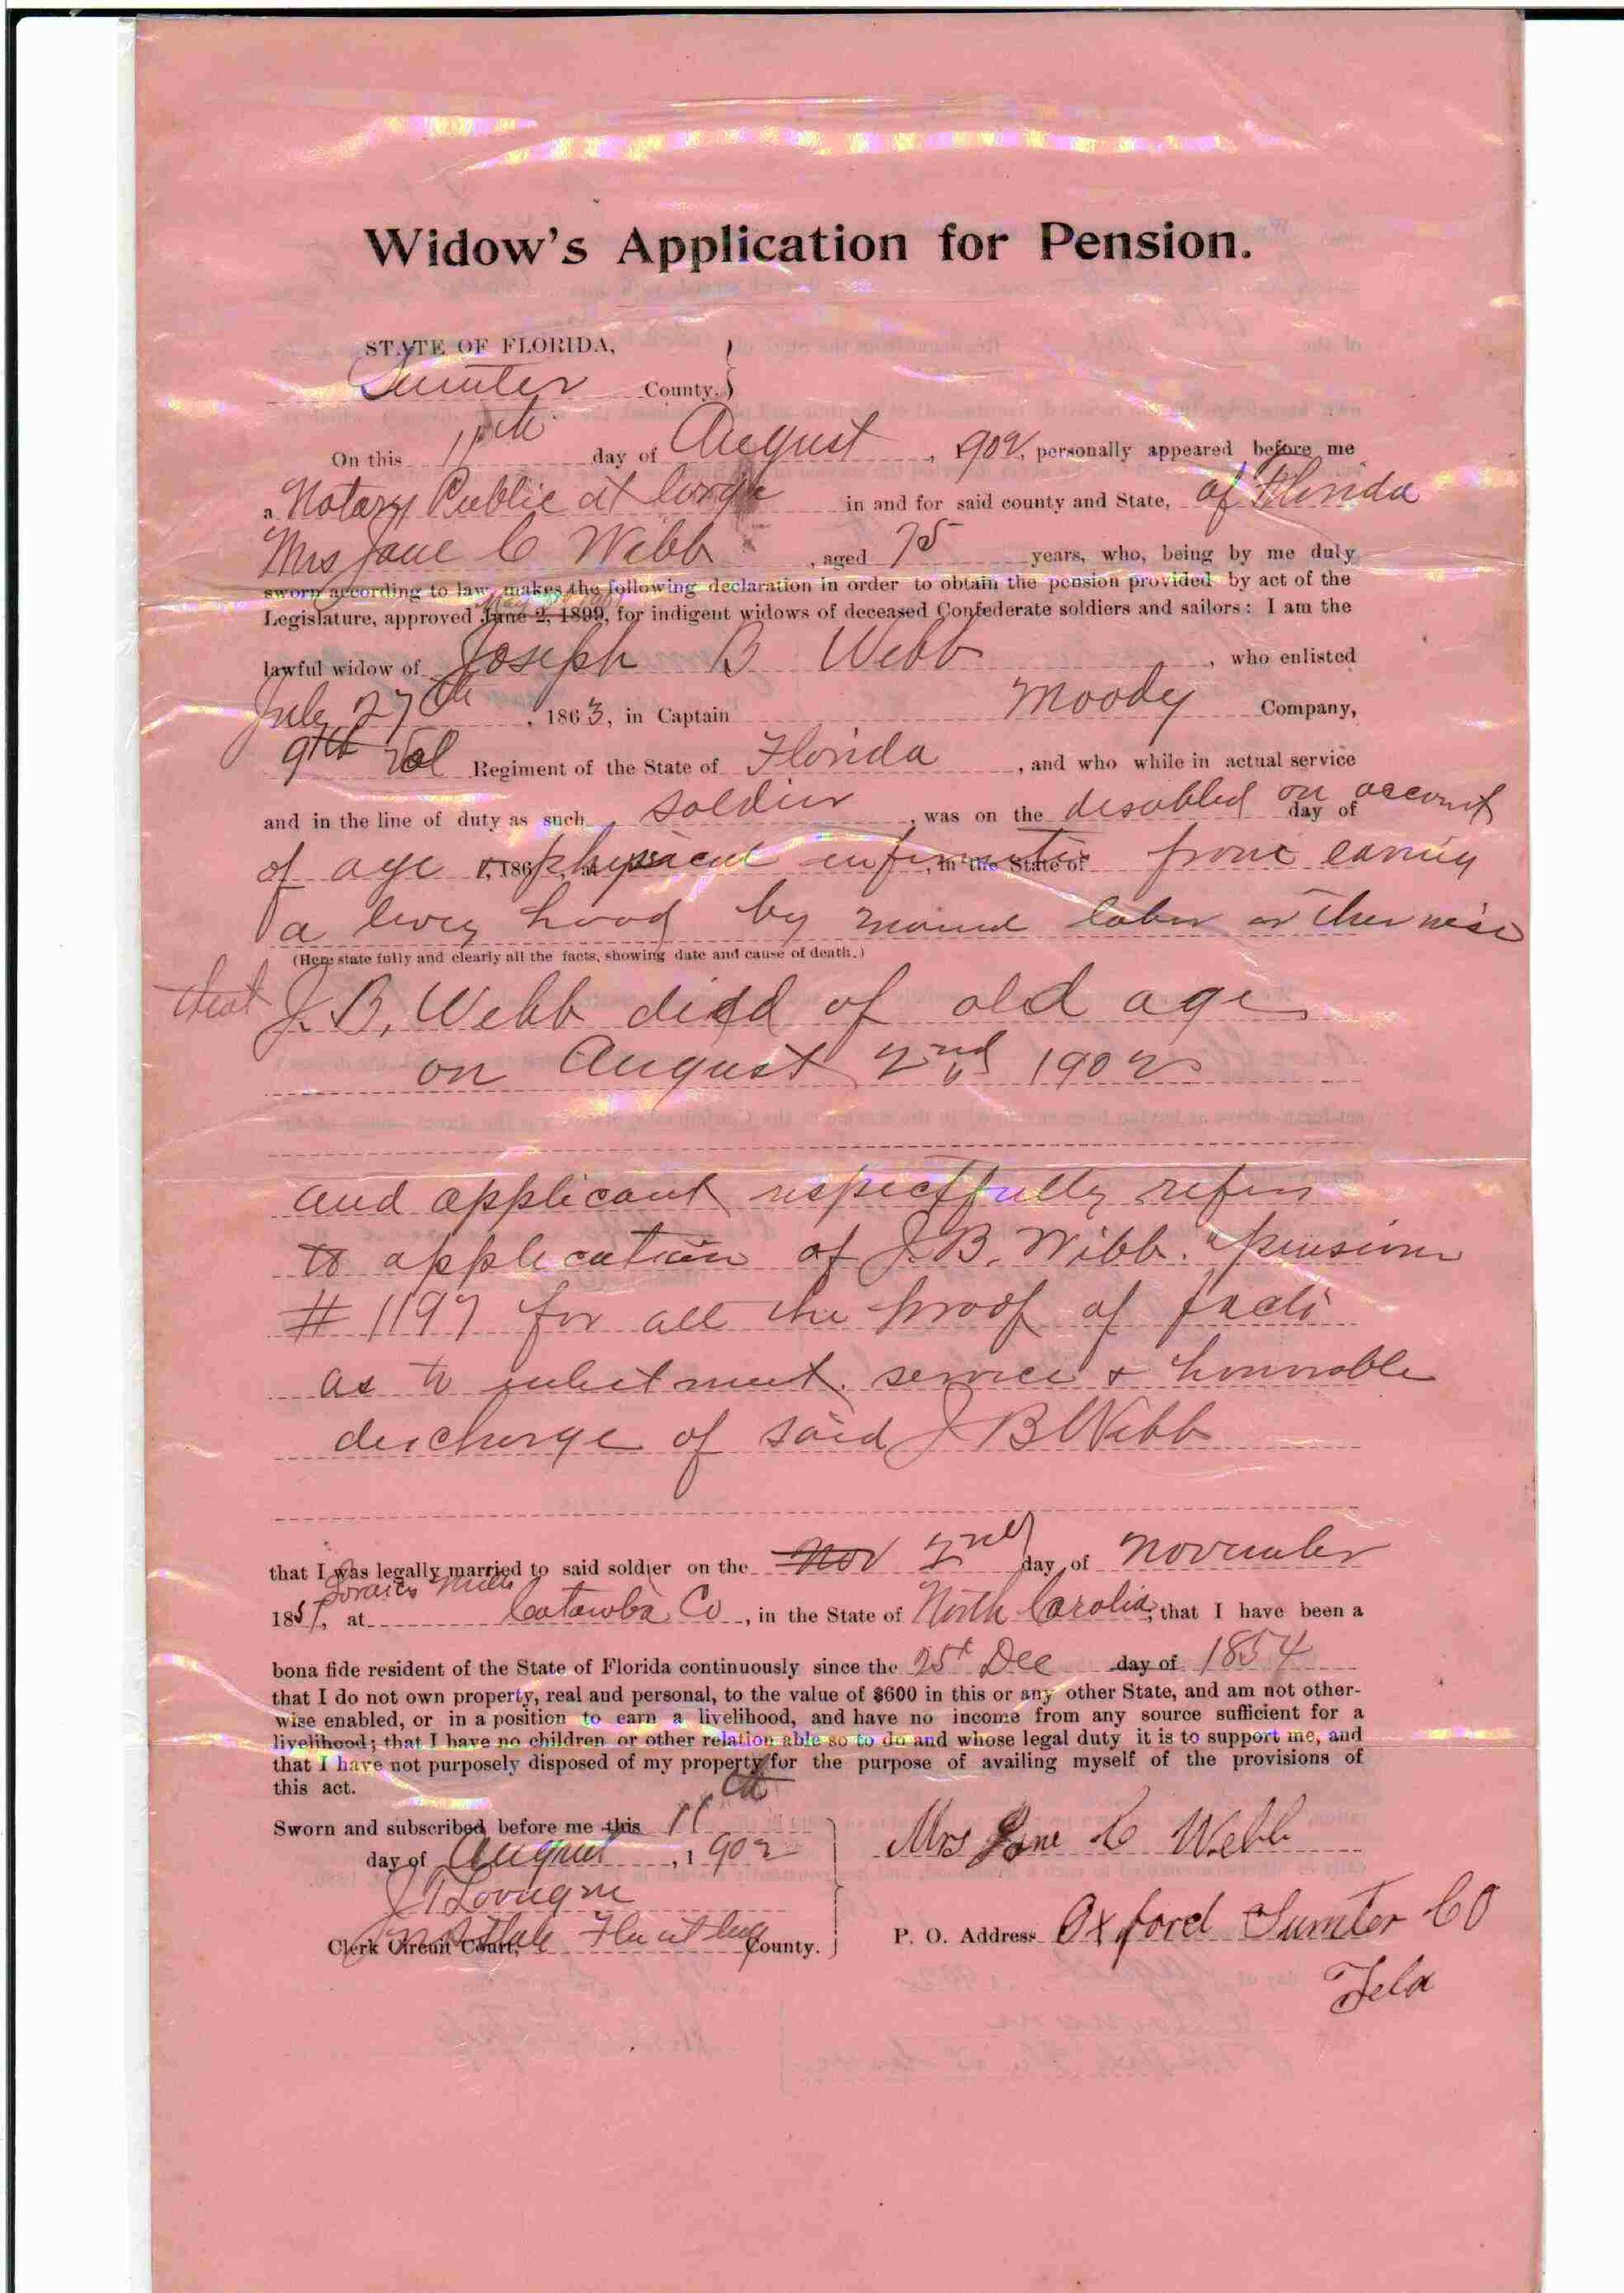 Widow's Application for Pension.
STATE OF FLORIDA,
Sumter County.
On this 11th day of August, 1902, personally appeared before me
a Notary Public at large in and for said county and State, of Florida
Mrs Jane C Webb, aged 75 years, who, being by me duly
sworn according to law, makes the following declaration in order to obtain the pension provided by act of the
Legislature, approved June 2, 1899, for indigent widows of deceased Confederate soldiers and sailors: I am the
lawful widow of Joseph B Webb, who enlisted
July 27th, 1863, in Captain Moody Company,
9th Vol Regiment of the State of Florida, and who while in actual service
and in the line of duty as such soldier, was on the disabled on account day of
of age, 186 physical, in the State of from
a hood by labor or
(Here state fully and clearly all the facts, showing date and cause of death.)
that J. B. Webb died of old age
on August 2nd 1902
and applicant respectfully refers
to application of J. B. Webb. pension
# 1197 for all the proof of facts
as to service & honorable
discharge of said J B Webb
that I was legally married to said soldier on the Nov 2nd day of November
Mills
185, at Catawba Co, in the State of North Carolia, that I have been a
bona fide resident of the State of Florida continuously since the 25t Dec day of 1854
that I do not own property, real and personal, to the value of $600 in this or any other State, and am not other-
wise enabled, or in a position to earn a livelihood, and have no income from any source sufficient for a
livelihood; that I have no children or other relation able so to do and whose legal duty it is to support me, and
that I have not purposely disposed of my property for the purpose of availing myself of the provisions of
this act.
Sworn and subscribed before me this 11th
day of August, 1902
Mrs Jane C Webb
Clerk Circuit Court, County.
P. O. Address Oxford Sumter CO
Fela